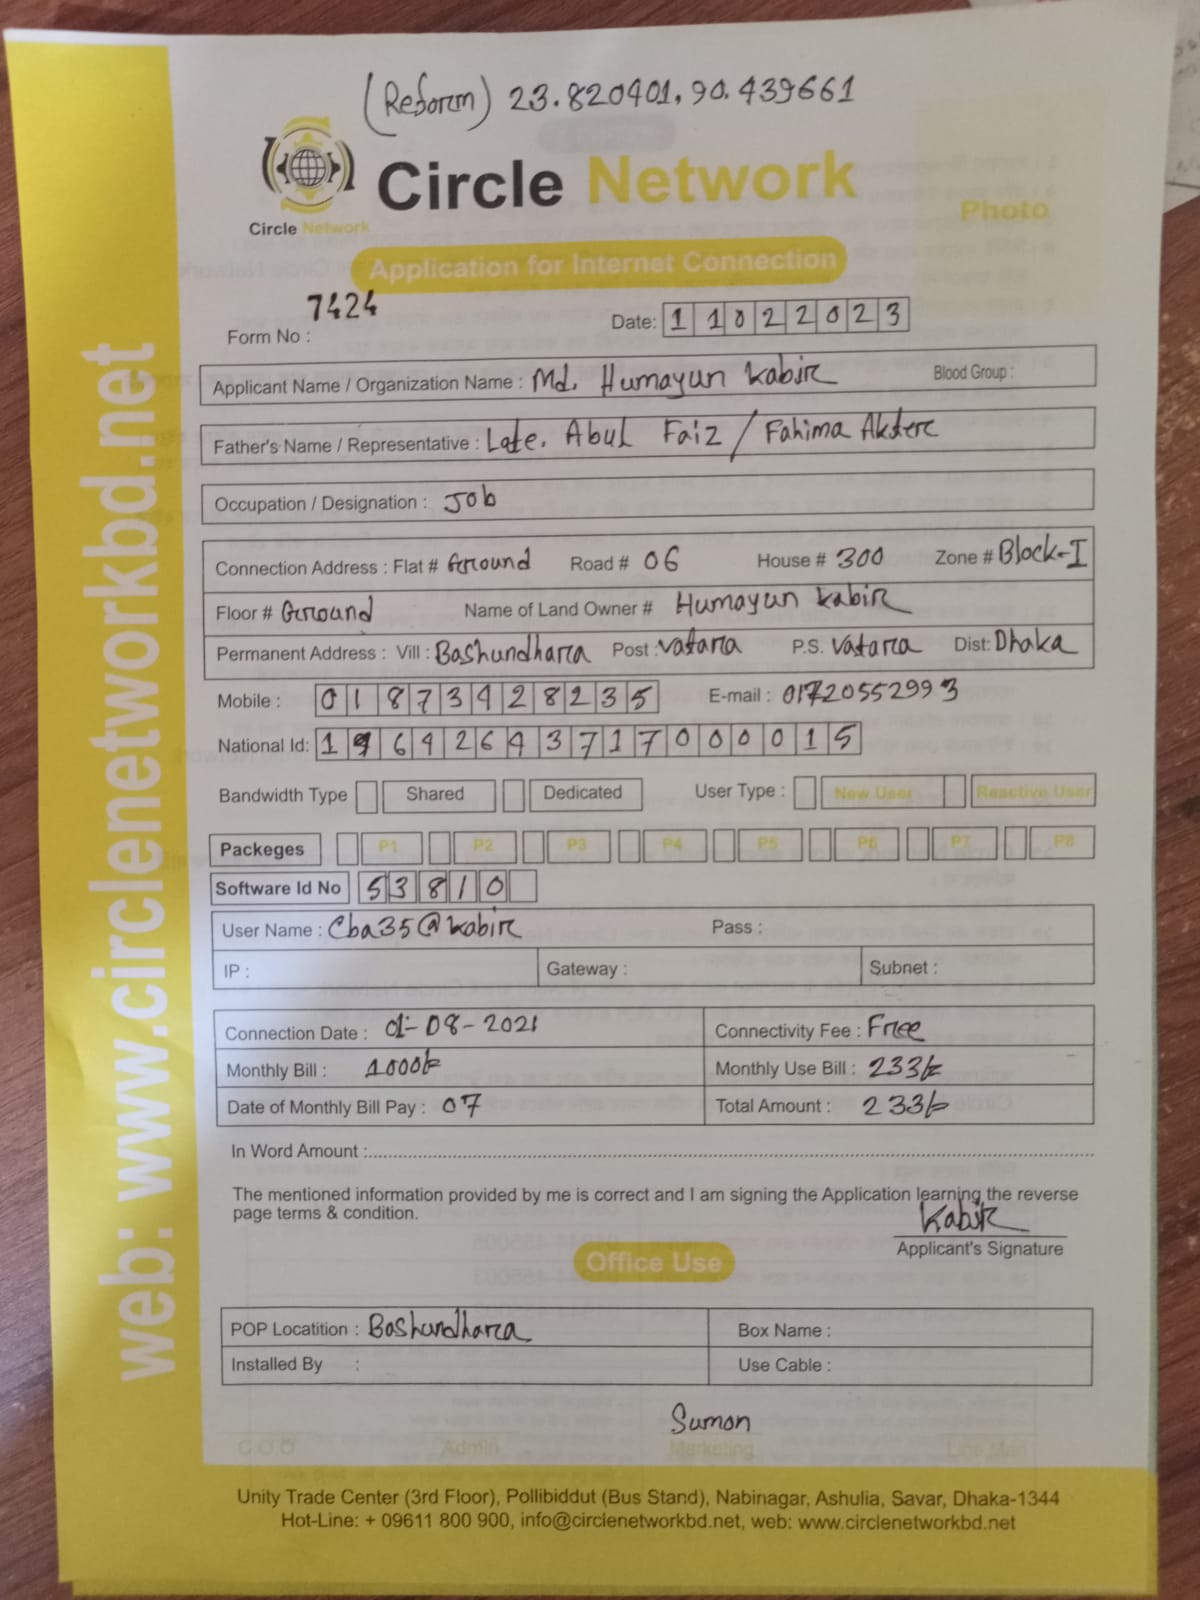 (Reform) 23.820401, 90.439661
Circle Network
Circle Network
Photo
Application for Internet Connection
Form No : 7424
Date: 11022023
Applicant Name / Organization Name : Md. Humayun Kabir Blood Group :
Father's Name / Representative : Late. Abul Faiz / Fahima Akter
Occupation / Designation : Job
Connection Address : Flat # Ground Road # 06 House # 300 Zone # Block-I
Floor # Ground Name of Land Owner # Humayun Kabir
Permanent Address : Vill : Bashundhara Post : Vatara P.S. Vatara Dist: Dhaka
Mobile : 01873428235 E-mail : 01720552993
National Id: 19642643717000015
Bandwidth Type Shared Dedicated User Type : New User Reactive User
Packeges P1 P2 P3 P4 P5 P6 P7 P8
Software Id No 53810
User Name : Cba35@kabir Pass :
IP : Gateway : Subnet :
Connection Date : 01-08-2021 Connectivity Fee : Free
Monthly Bill : 1000/= Monthly Use Bill : 233/=
Date of Monthly Bill Pay : 07 Total Amount : 233/=
In Word Amount :
The mentioned information provided by me is correct and I am signing the Application learning the reverse
page terms & condition.
Kabir
Applicant's Signature
Office Use
POP Locatition : Bashundhara Box Name :
Installed By : Use Cable :
Sumon
C.O.O Admin Marketing Line Man
Unity Trade Center (3rd Floor), Pollibiddut (Bus Stand), Nabinagar, Ashulia, Savar, Dhaka-1344
Hot-Line: + 09611 800 900, info@circlenetworkbd.net, web: www.circlenetworkbd.net
web: www.circlenetworkbd.net